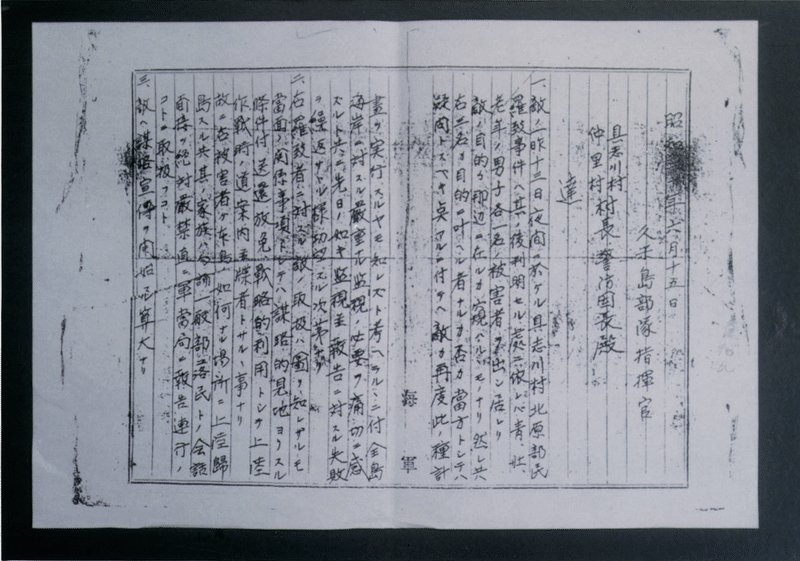 昭和 年六月十五日
久米島部隊指揮官
具志川村
仲里村村長警防団長殿
達
一、敵ノ昨十三日夜間ニ於ケル具志川村北原部民
羅致事件ハ其ノ後判明セル処ニ依レバ青、壮
老年ノ男子各一名ノ被害者ヲ出シ居レリ
敵ノ目的ガ那辺ニ在ルカ窺ハルルモノナリ然レ共
右三名ガ目的ニ叶ヘル者ナルカ否カ当方トシテハ
疑問トスベキ点アルニ付キ敵ガ再度此ノ種計
画ヲ実行スルヤモ知レズト考ヘラルルニ付全島
海岸ニ対スル厳重ナル監視ノ必要ヲ痛切ニ感
ズルト共ニ先日ノ如キ監視並報告ニ対スル失敗
ヲ繰返サザル様切望スル次第ナリ
二、右羅致者ニ対スル敵ノ取扱ハ図リ知レザルモ
当面ノ関係事項トシテハ謀略的見地ヨリスル
条件付送還放免、戦略的利用トシテ上陸
作戦時道案内並楪者トサル事ナリ
故ニ右被害者ガ本島ノ如何ナル場所ニ上陸帰
島スル共其ノ家族ハ勿論一般部落民トノ会談
面接ヲ絶対厳禁直ニ軍当局ニ報告連行ノ
コトニ取扱フコト、
三、敵ハ謀略宣伝ヲ開始スル算大ナリ
海軍